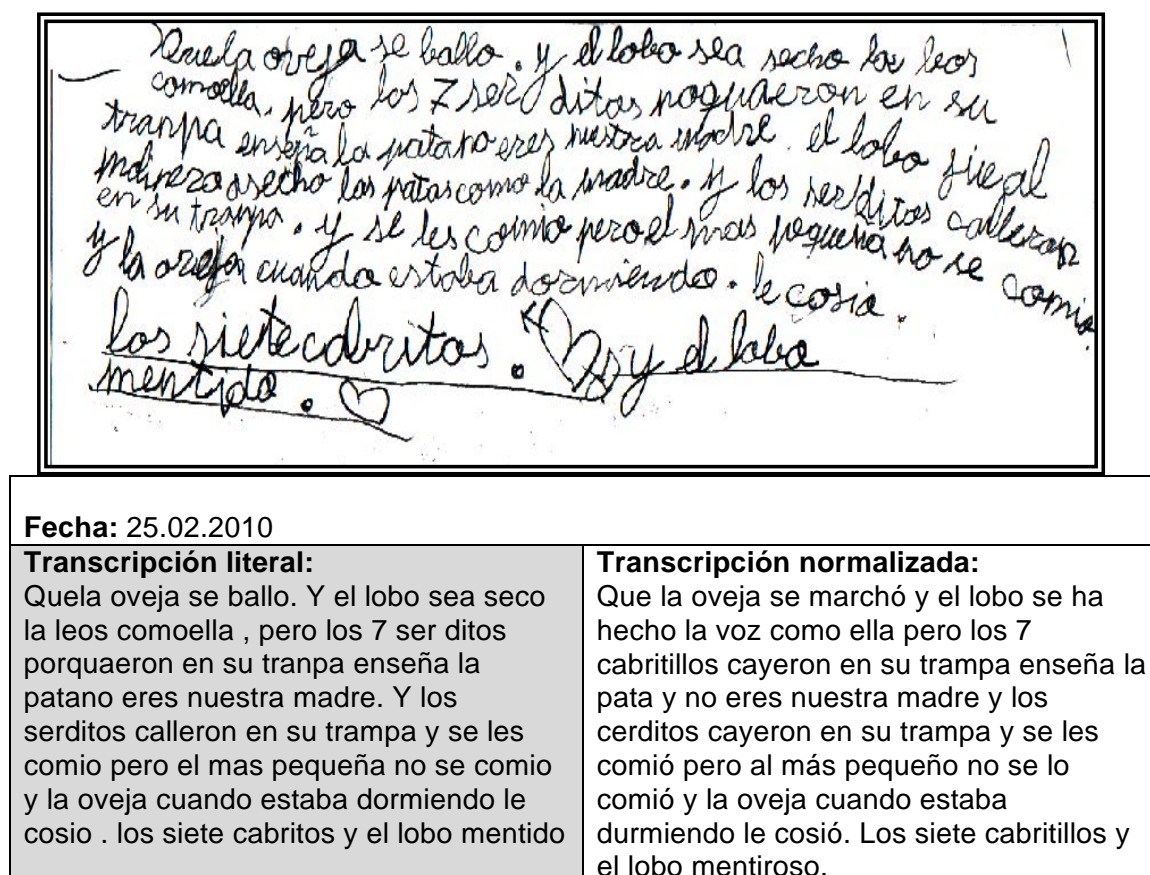 Quela oveja se ballo. y el lobo sea secho la leos
comoella, pero los 7 ser ditos noquaeron en su
tranpa enseña la patano eres nuestra madre. el lobo fue al
molinero asecho las patas como la madre. y los serditos calleron
en su tranpa. y se les comio pero el mas pequeña no se comio.
y la oveja cuando estaba dormiendo. le cosia.
los siete cabritos. y el lobo
mentido.
Fecha: 25.02.2010
Transcripción literal:
Quela oveja se ballo. Y el lobo sea seco
la leos comoella , pero los 7 ser ditos
porquaeron en su tranpa enseña la
patano eres nuestra madre. Y los
serditos calleron en su trampa y se les
comio pero el mas pequeña no se comio
y la oveja cuando estaba dormiendo le
cosio . los siete cabritos y el lobo mentido
Transcripción normalizada:
Que la oveja se marchó y el lobo se ha
hecho la voz como ella pero los 7
cabritillos cayeron en su trampa enseña la
pata y no eres nuestra madre y los
cerditos cayeron en su trampa y se les
comió pero al más pequeño no se lo
comió y la oveja cuando estaba
durmiendo le cosió. Los siete cabritillos y
el lobo mentiroso.